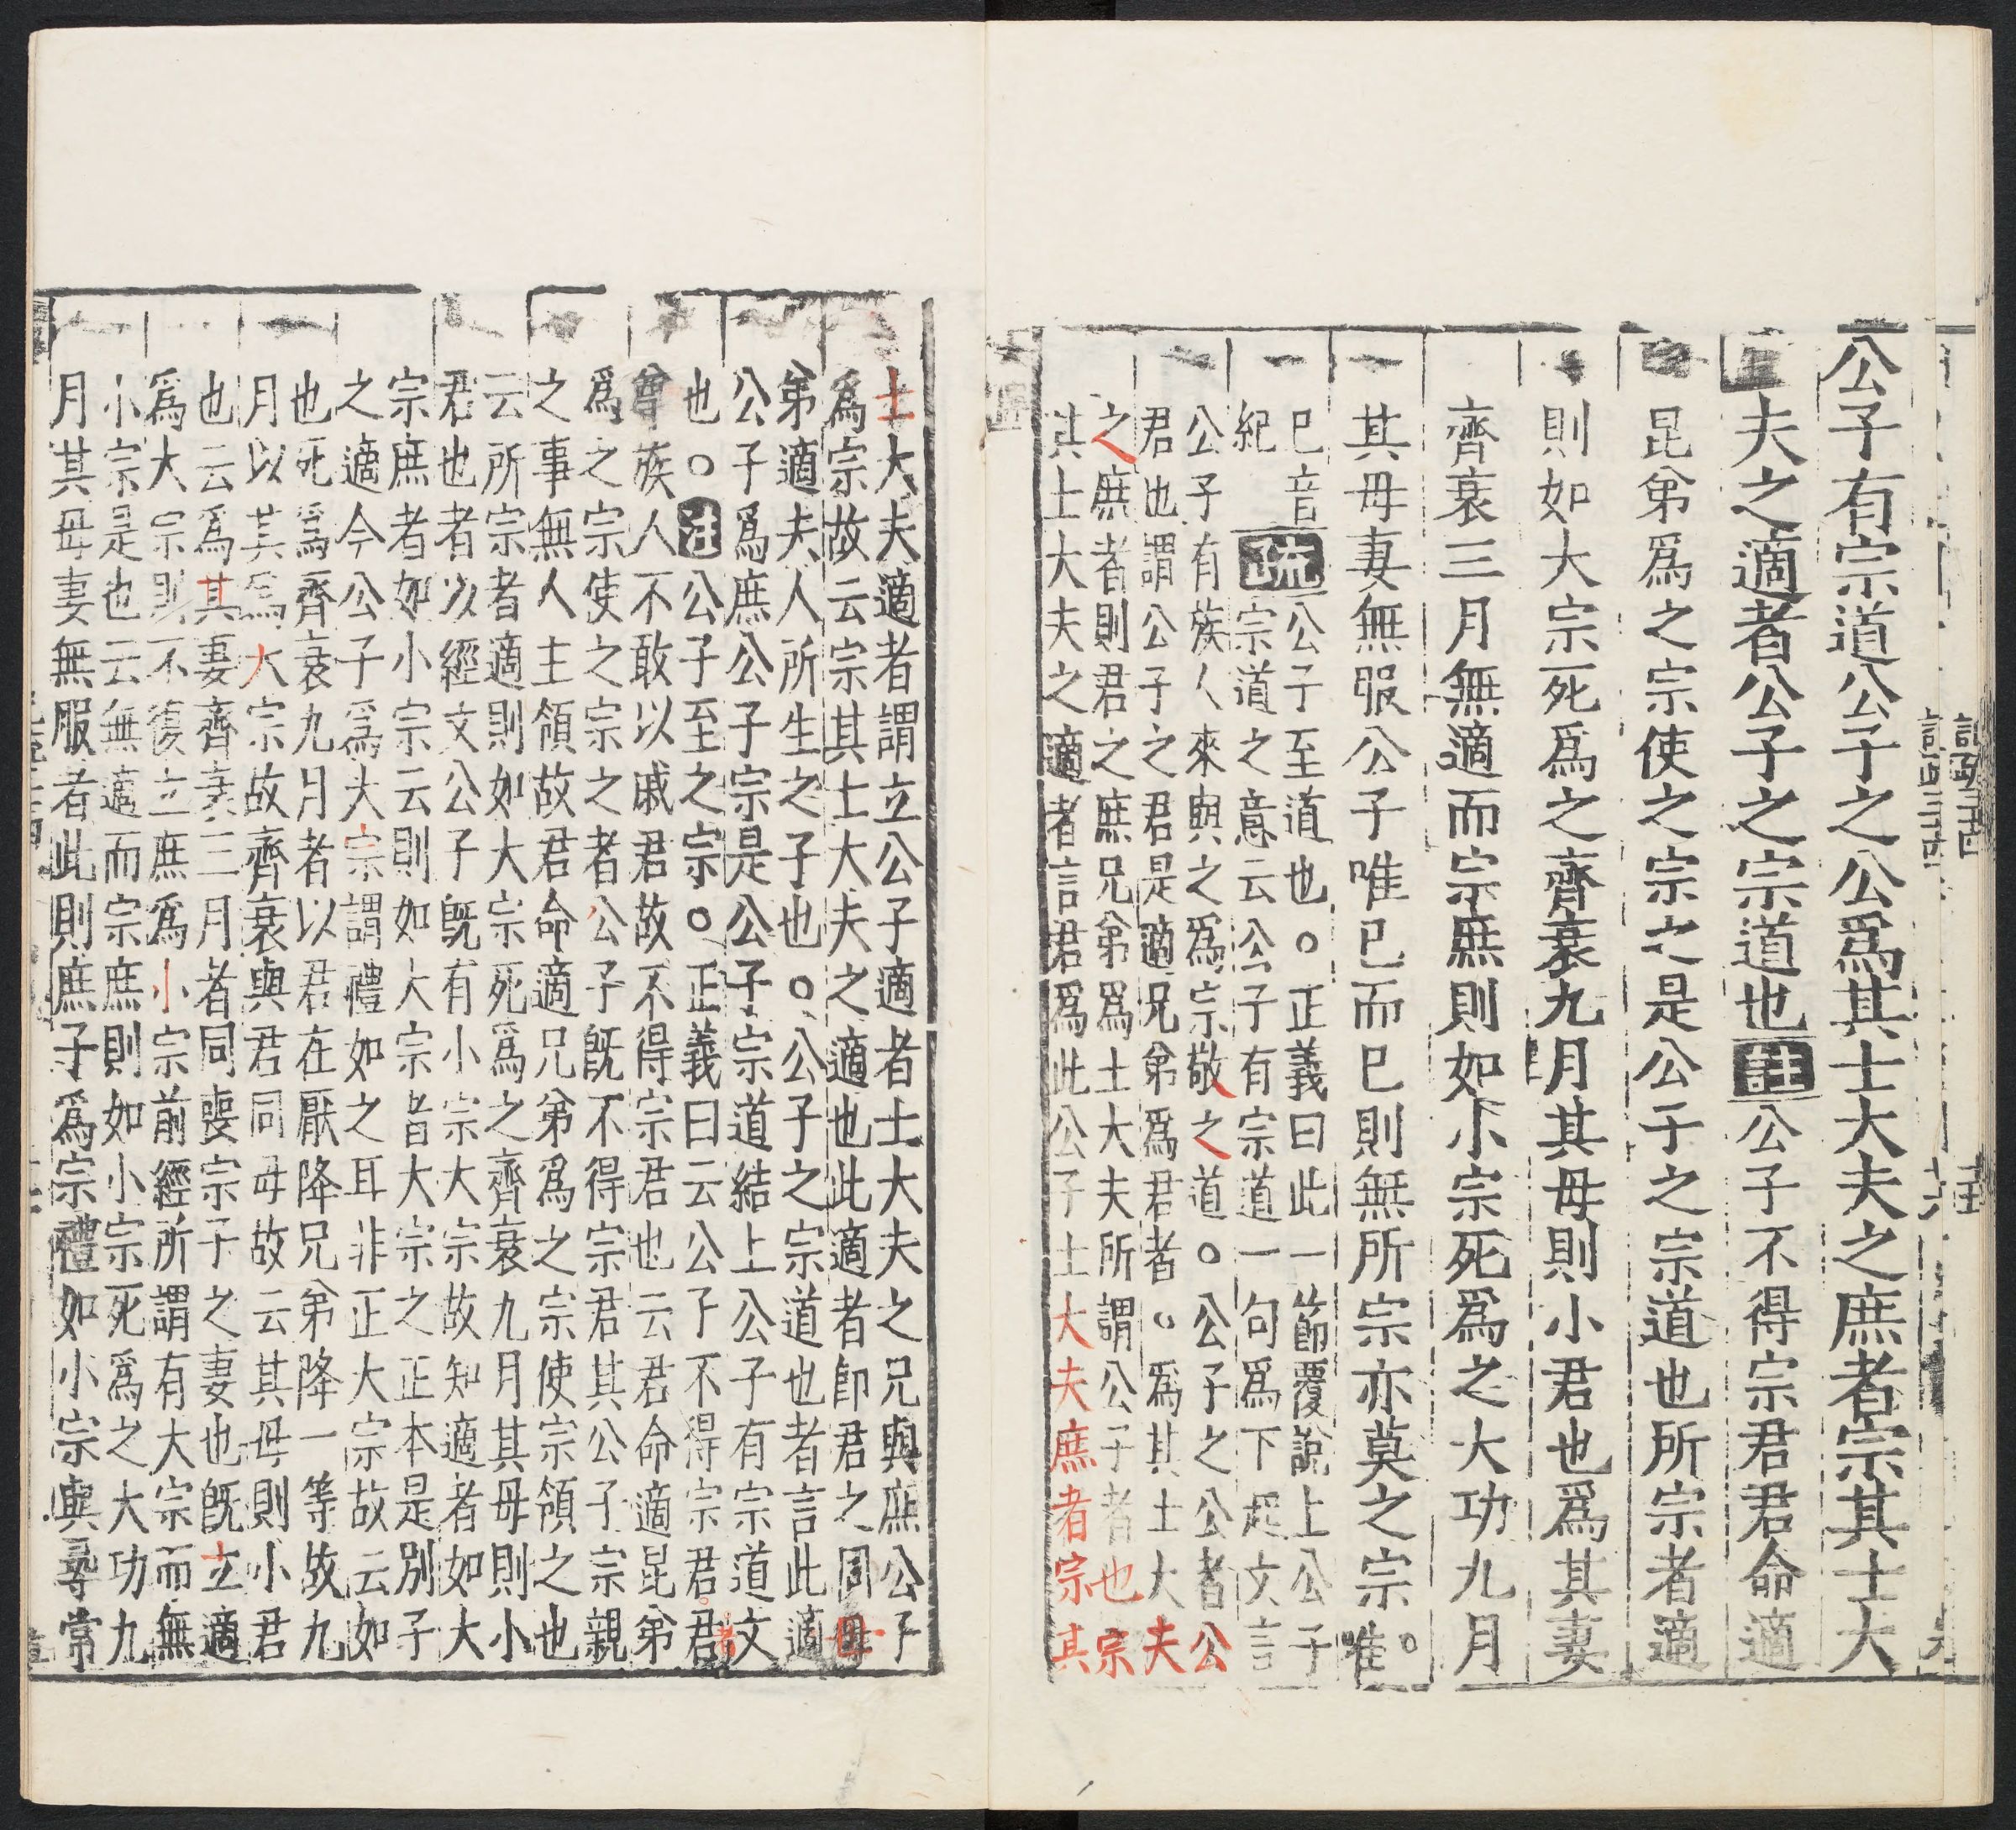 公子有宗道公子之公爲其士大夫之庶者宗其士大
夫之適者公子之宗道也註公子不得宗君君命適
昆弟爲之宗使之宗之是公子之宗道也所宗者適
則如大宗死爲之齊衰九月其母則小君也爲其妻
齊衰三月無適而宗庶則如小宗死爲之大功九月
其母妻無服公子唯已而已則無所宗亦莫之宗。唯
已音
紀
疏
公子至道也。正義曰此一節覆說上公子
宗道之意云公子有宗道一句爲下起文言
公子有族人來與之爲宗敬之道。公子之公者公
君也謂公子之君是適兄弟爲君者。爲其士大夫
之庶者則君之庶兄弟爲士大夫所謂公子者也宗
其士大夫之適者言君爲此公子士大夫庶者宗其
士大夫適者謂立公子適者士大夫之兄與庶公子
爲宗故云宗其士大夫之適也此適者卽君之同母
弟適夫人所生之子也。公子之宗道也者言此適
公子爲庶公子宗是公子宗道結上公子有宗道文
也。注公子至之宗。正義曰云公子不得宗君者君
尊族人不敢以戚君故不得宗君也云君命適昆弟
爲之宗使之宗之者公子既不得宗君其公子宗親
之事無人主領故君命適兄弟爲之宗使宗領之也
云所宗者適則如大宗死爲之齊衰九月其母則小
君也者以經文公子旣有小宗大宗故知適者如大
宗庶者如小宗云則如大宗者大宗之正本是別子
之適今公子爲大宗謂禮如之耳非正大宗故云如
也死爲齊衰九月者以君在厭降兄弟降一等故九
月以其爲大宗故齊衰與君同母故云其母則小君
也云爲其妻齊衰三月者同喪宗子之妻也旣立適
爲大宗則不復立庶爲小宗前經所謂有大宗而無
小宗是也云無適而宗庶則如小宗死爲之大功九
月其母妻無服者此則庶子爲宗禮如小宗與尋常